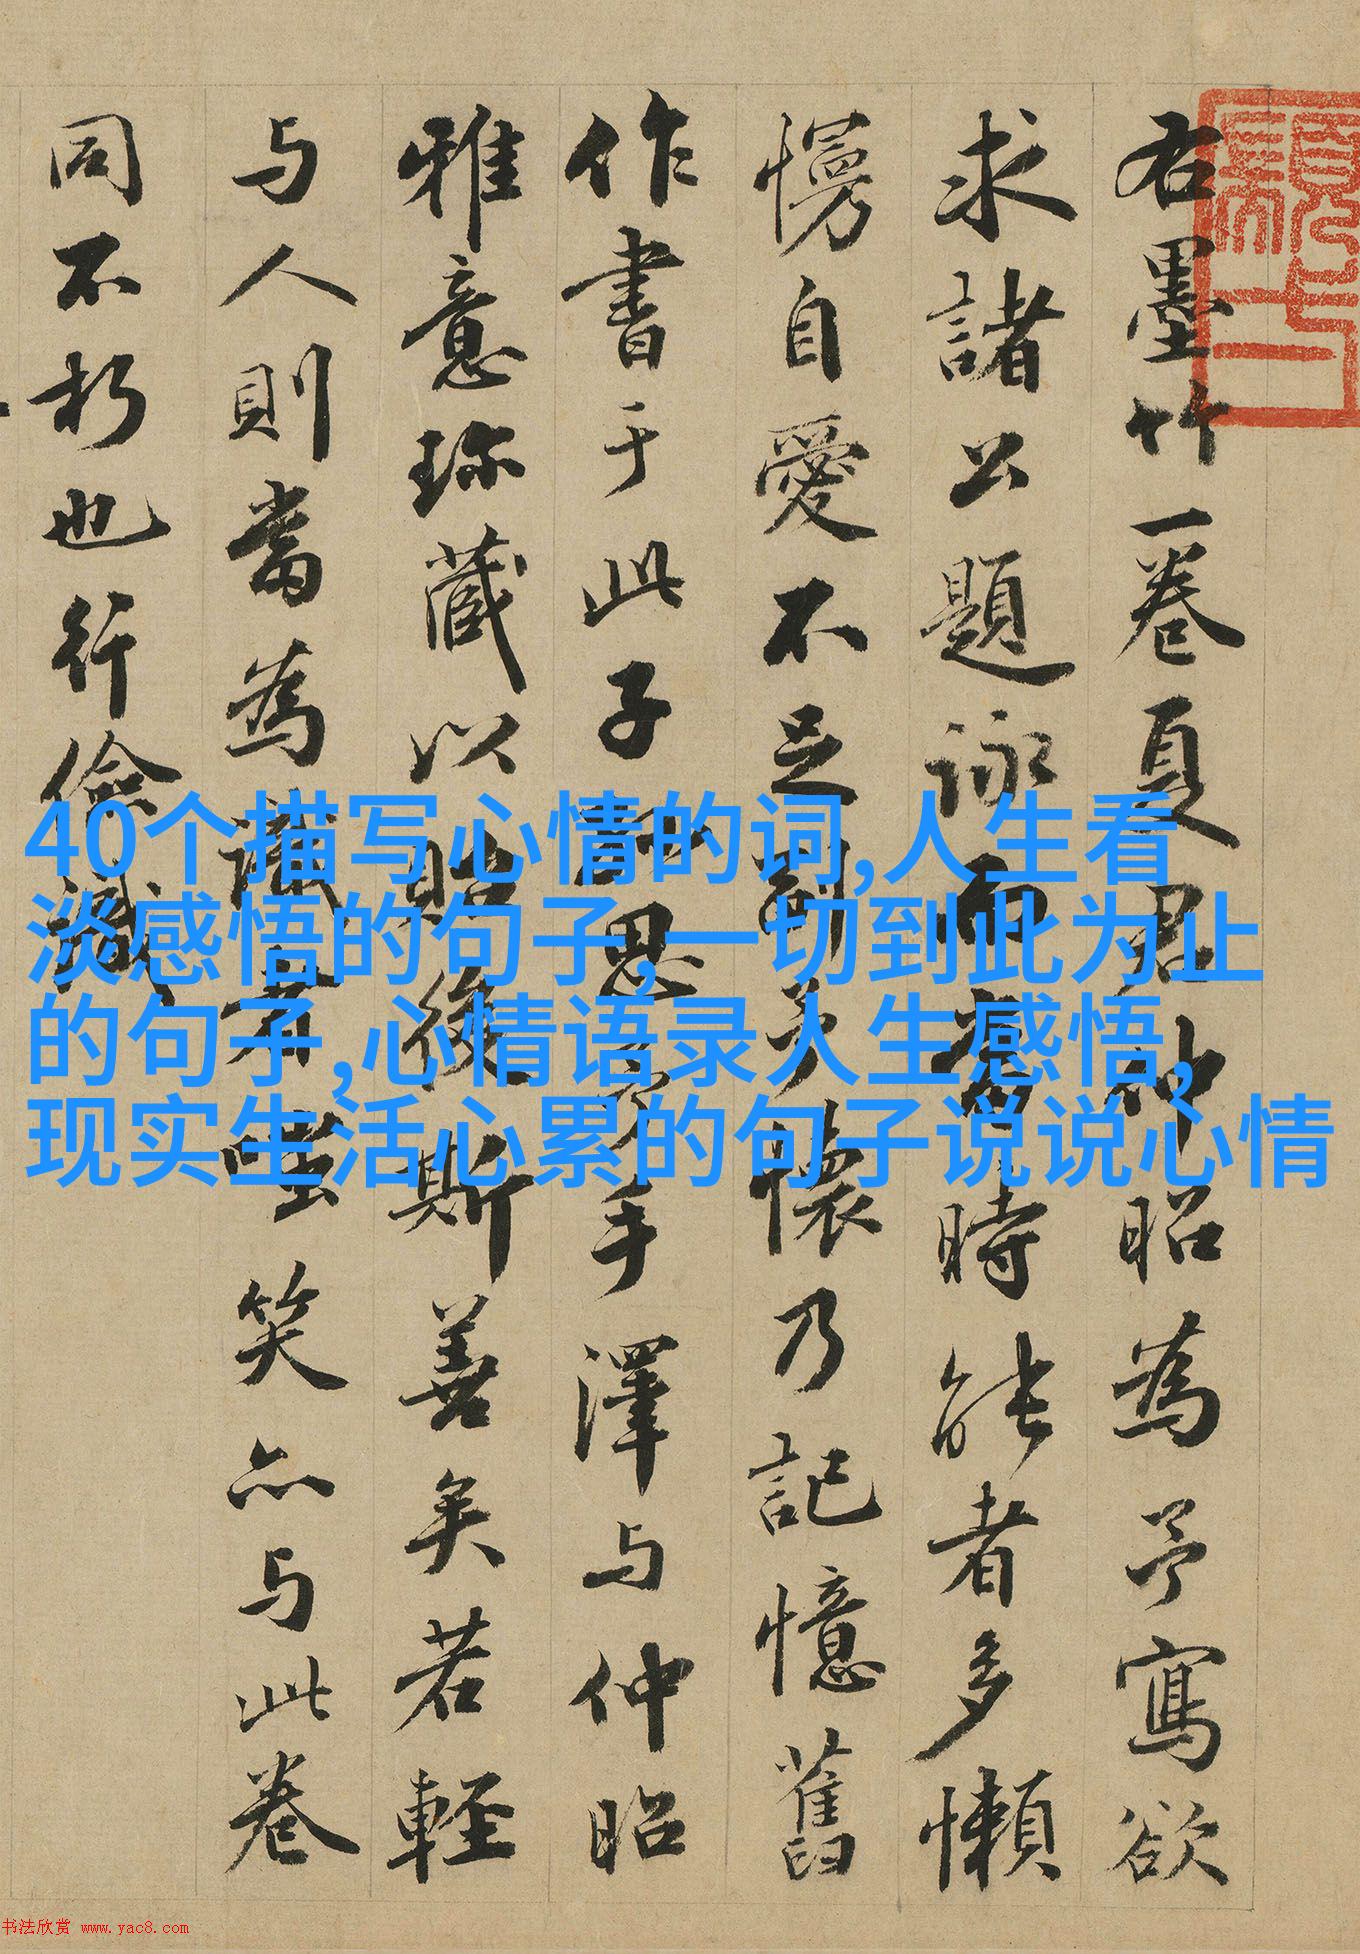 右墨竹一卷夏君仲昭為予寫欲
求諸公題詠而時能者多懶
慢自愛不足副予懷乃記憶舊
作書于此子思手澤与仲昭
雅意珎藏以貽後斯善矣若輕
与人則當為識者嗤笑亦与此卷
同不朽也行儉識
40个描写心情的词,人生看
淡感悟的句子,一切到此为止
的句子,心情语录人生感悟,
现实生活心累的句子说说心情
书法欣赏 www.yac8.com